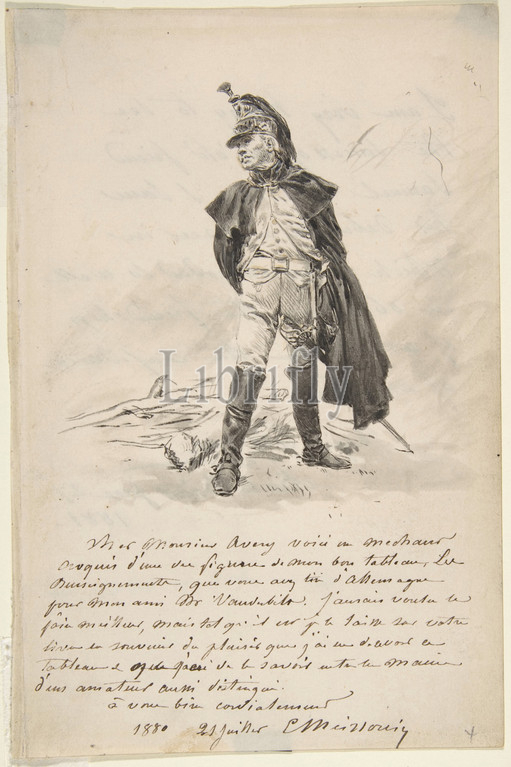 Libriufly
EM 1879
Mon cher Monsieur Avery voici un mechant
croquis d'une des figures de mon bon tableau, Les
Renseignements, que vous avez tiré d'Allemagne
pour mon ami Mr Vanderbilt. J'aurais voulu le
faire meilleur, mais tel qu'il est je le laisse sur votre
livre en souvenir du plaisir que j'ai eu de revoir ce
tableau et que j'ai de le savoir entre les mains
d'un amateur aussi distingué.
à vous bien cordialement
1880 21 Juillet EMeissonier